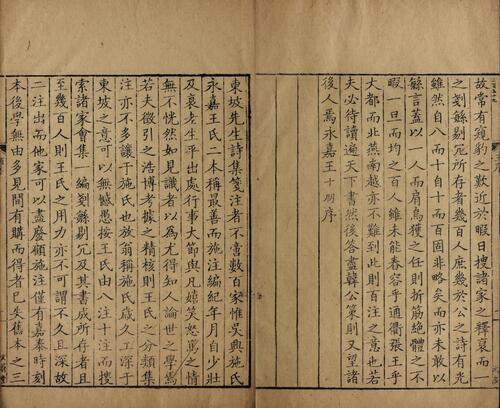 故常有窺豹之歎近於暇日搜諸家之釋裒而一
之剗繇剔冗所存者幾百人庶幾於公之詩有光
雖然自八而十自十而百固非略矣而亦未敢以
繇言蓋以一人而肩烏獲之任則折筋絕體之不
暇一旦而均之百人雖未能舂容乎通衢張王乎
大都而北燕南越亦不難到此則百注之意也若
夫必待讀遍天下書然後答盡韓公策則又望諸
後人焉永嘉王十朋序
東坡先生詩集箋注者不啻數百家惟吳興施氏
永嘉王氏二本稱最善而施注編紀年月自少壯
及衰老生平出處行事大節與凡嬉笑怒罵之情
無不恍然如見識者以為尤得知人論世之學焉
若夫徵引之浩博考據之精核則王氏之分類集
注亦不多讓于施氏也放翁稱施氏歲久工深于
東坡之意可以無憾愚按王氏由八注十注而搜
索諸家會集一編剗繇剔冗及其書成所存者且
至幾百人則王氏之用力亦不可謂不久且深故
二注出而他家可以盡廢顧施注僅有嘉泰時刻
本後學無由多見間有購而得者已失舊本之三